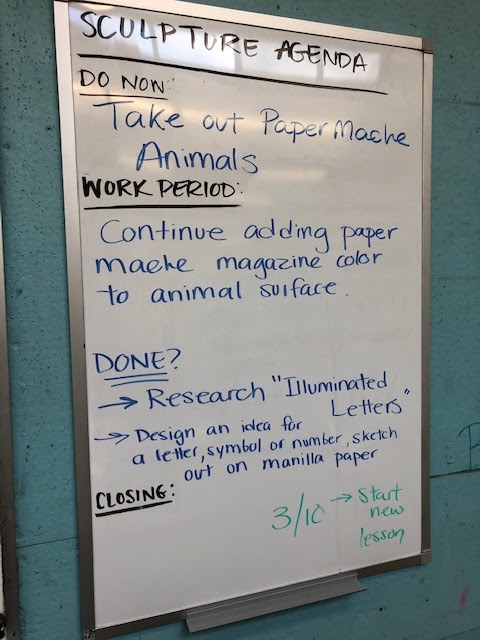 SCULPTURE AGENDA
DO NOW:
Take out Paper Mache
Animals
WORK PERIOD:
Continue adding paper
mache magazine color
to animal surface.
DONE?
→ Research "Illuminated
Letters"
→ Design an idea for
a letter, symbol or number, sketch
out on manilla paper
CLOSING:
3/10 → Start
new
lesson